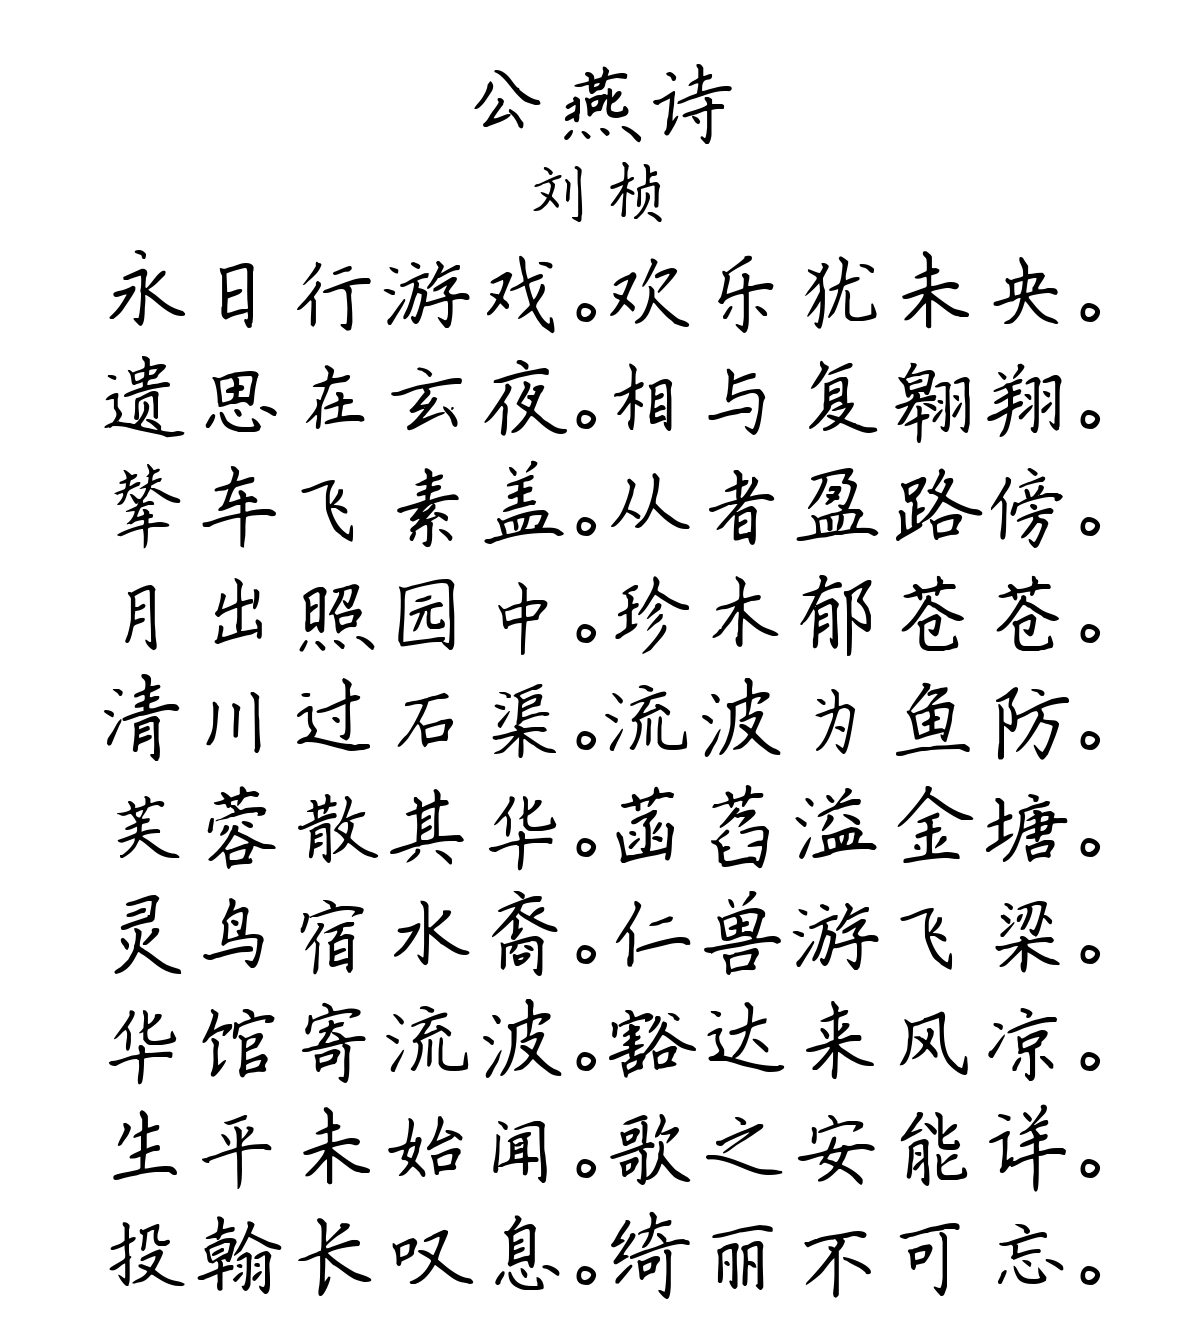 公燕诗
刘桢
永日行游戏。欢乐犹未央。
遗思在玄夜。相与复翱翔。
辇车飞素盖。从者盈路傍。
月出照园中。珍木郁苍苍。
清川过石渠。流波为鱼防。
芙蓉散其华。菡萏溢金塘。
灵鸟宿水裔。仁兽游飞梁。
华馆寄流波。豁达来风凉。
生平未始闻。歌之安能详。
投翰长叹息。绮丽不可忘。